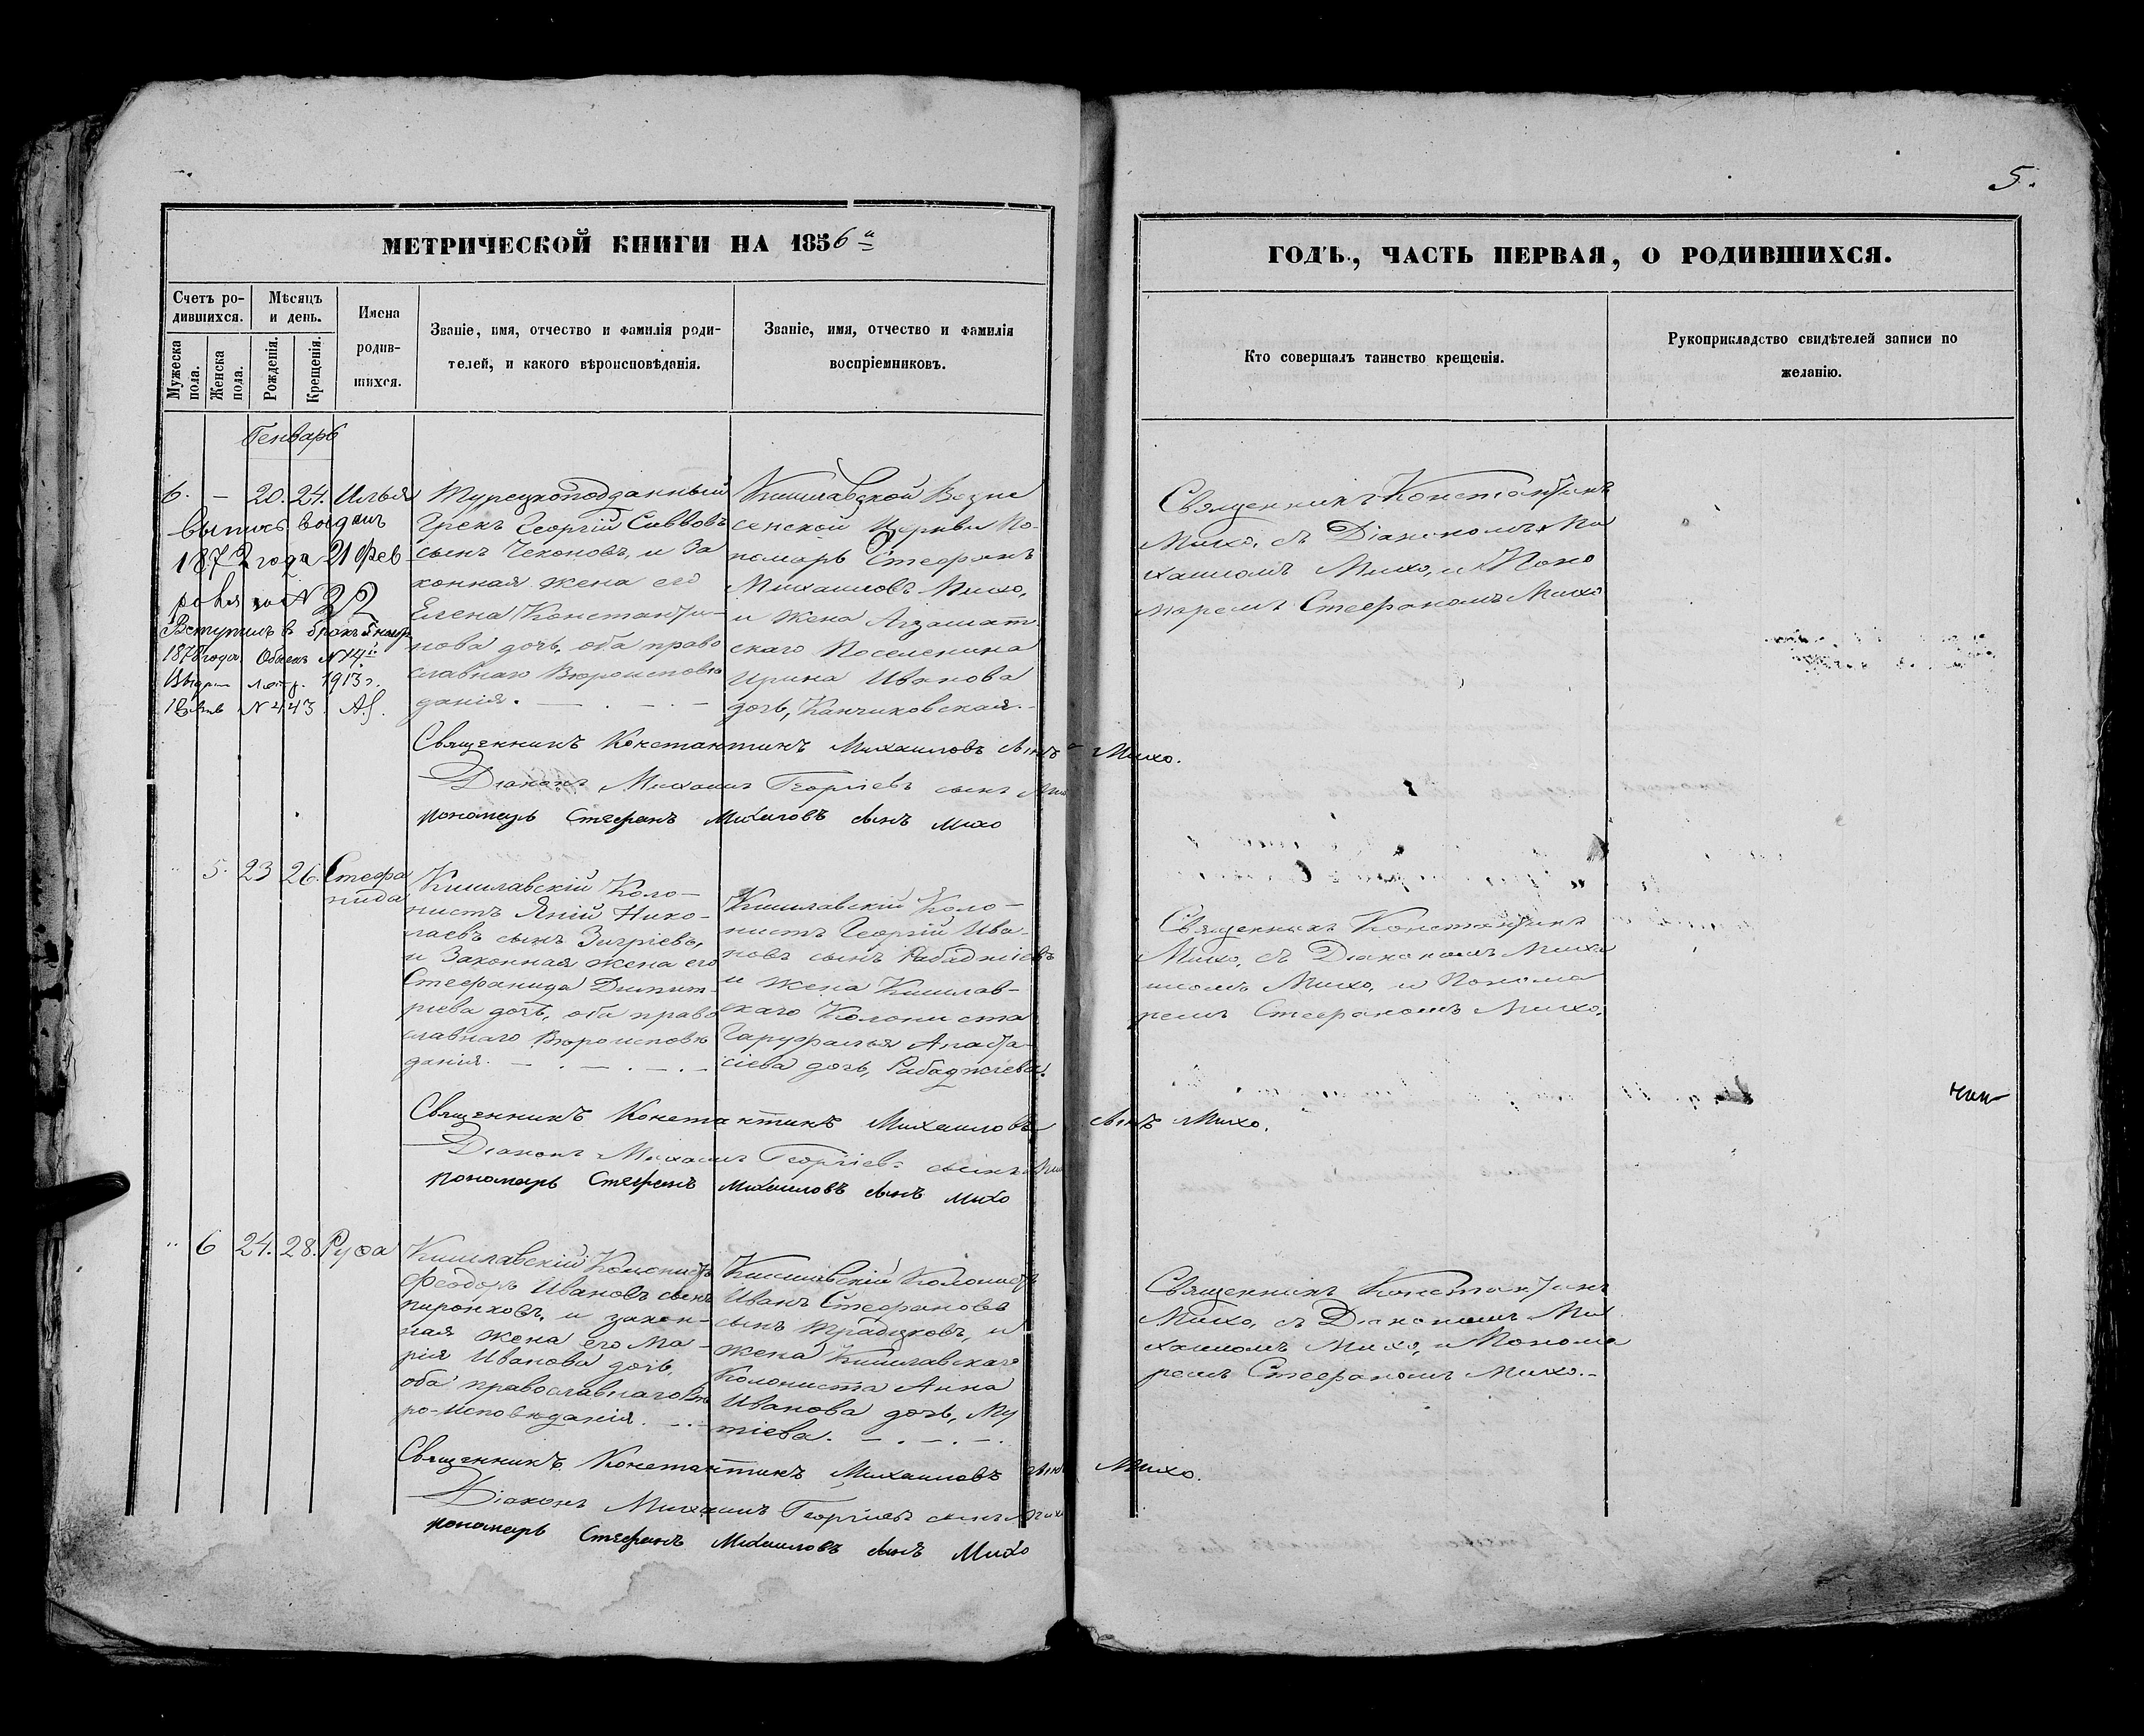 5.
МЕТРИЧЕСКОЙ КНИГИ НА 1856 а
ГОДЪ, ЧАСТЬ ПЕРВАЯ, О РОДИВШИХСЯ.
Счетъ ро-
дившихся.
Мѣсяцъ
и день.
Имена
родив-
шихся.
Мужеска
пола.
Женска
пола.
Рожденія.
Крещенія.
Званіе, имя, отчество и фамилія роди-
телей, и какого вѣроисповѣданія.
Званіе, имя, отчество и фамилія
воспріемниковъ.
Кто совершалъ таинство крещенія.
Рукоприкладство свидѣтелей записи по
желанію.
Генварь
6. – 20. 24. Илья
1872 года 21 Фев-
роля №22
Вступилъ в бракъ
1878 года
1913 г.
№ 443
Турецкоподданный
Грекъ Георгій Саввовъ
сынъ Чеконовъ, и за
конная жена его
Елена Константи-
нова дочь, оба право
славнаго Вѣроисповѣ
данія. — . — . —
Кишлавской Возне
сенской Церкви По-
номарь Стефанъ
Михаиловъ Михо,
и жена
скаго Поселенина
Ирина Иванова
дочь, Канчиковская.
Священникъ Константинъ
Михо, съ Діакономъ Ми
хаиломъ Михо, и Поно
маремъ Стефаномъ Михо
Священникъ Константинъ Михаиловъ сынъ Михо.
Діаконъ Михаилъ Георгіевъ сынъ
пономарь Стефанъ Михаиловъ сынъ Михо
5. 23 26. Стефа
нида
Кишлавскій Коло-
нистъ Яній Нико-
лаевъ сынъ
и Законная жена его
Стефанида Димит-
ріева дочь, оба право
славнаго Вѣроисповѣ
данія. — . — . — . —
Кишлавскій Коло-
нистъ Георгій Ива-
новъ сынъ Рабаджіевъ
и жена Кишлав-
скаго Колониста
Анаста
сіева дочь, Рабаджіева.
Священникъ Константинъ
Михо, съ Діакономъ Миха
иломъ Михо, и Понома
ремъ Стефаномъ Михо.
Священникъ Константинъ Михаиловъ сынъ Михо.
Діаконъ Михаилъ Георгіевъ сынъ
пономарь Стефанъ Михаиловъ сынъ Михо
6 24. 28. Руфа
Кишлавскій Колонистъ
Феодоръ Ивановъ сынъ
Пиронковъ, и закон-
ная жена его Ма-
рія Иванова дочь,
оба православнаго Вѣ
ро-Исповѣданія. — . —
Кишлавскій Колонистъ
Иванъ Стефановъ
сынъ и
жена Кишлавскаго
Колониста Анна
Иванова дочь, Му
тіева. — . — . — .
Священникъ Константинъ
Михо, съ Діакономъ Ми
хаиломъ Михо, и Понома
ремъ Стефаномъ Михо.-
Священникъ Константинъ Михаиловъ сынъ Михо.
Діаконъ Михаилъ Георгіевъ сынъ
пономарь Стефанъ Михаиловъ сынъ Михо